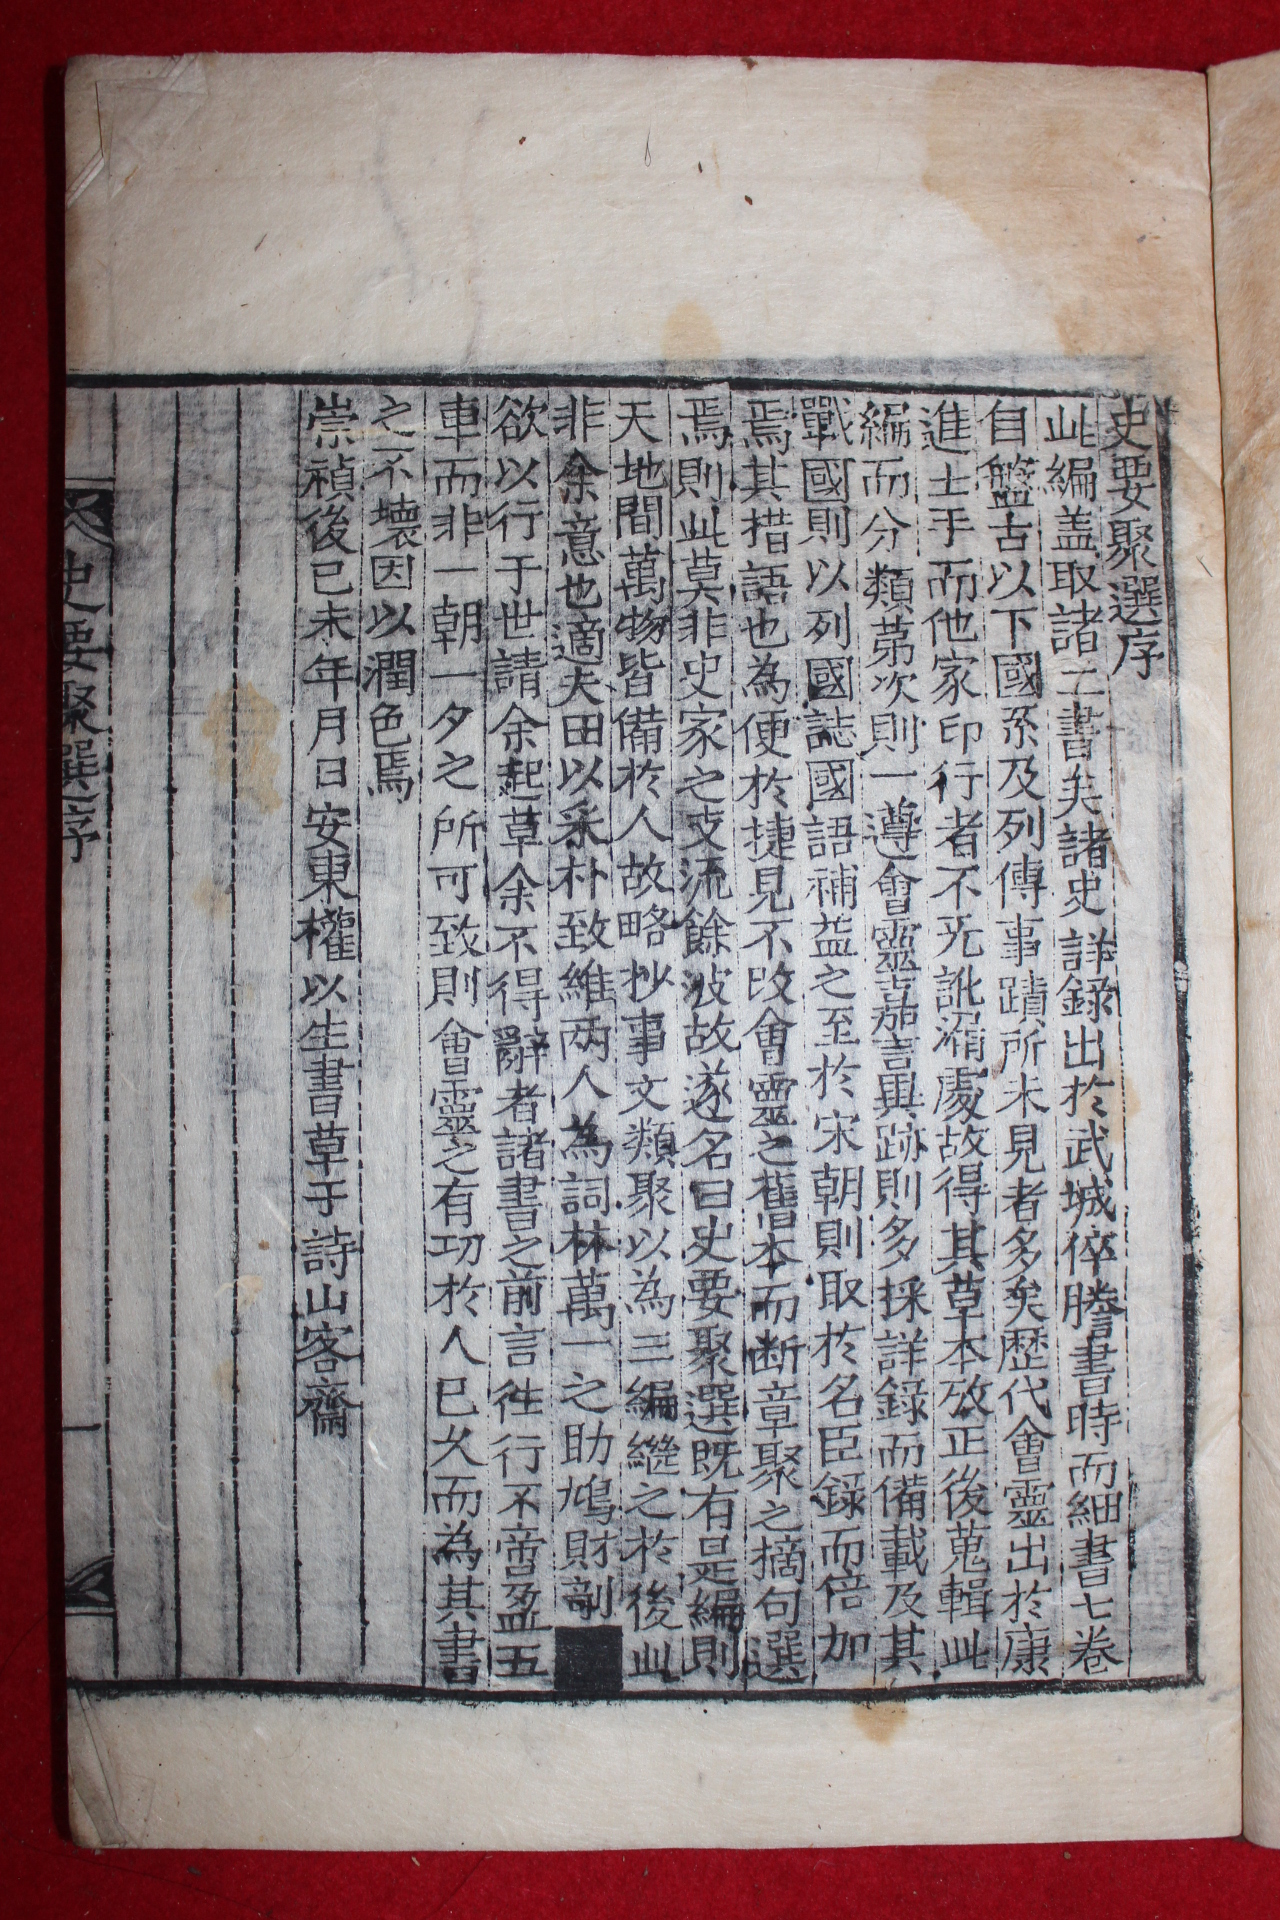 史要聚選序
此編盖取諸二書矣諸史詳録出於武城倅謄書時而細書七卷
自盤古以下國系及列傳事蹟所未見者多矣歷代會靈出於康
進士手而他家印行者不免訛漏處故得其草本攷正後蒐輯此
編而分類苐次則一遵會靈嘉言與跡則多採詳録而備載及其
戰國則以列國誌國語補益之至於宋朝則取於名臣録而倍加
焉其措語也為便於捷見不改會靈之舊本而断章聚之摘句選
焉則此莫非史家之支流餘波故遂名曰史要聚選既有是編則
天地間萬物皆備於人故略抄事文類聚以為三編繼之於後此
非余意也適夫田以采朴致維两人為詞林萬一之助鳩財剞
欲以行于世請余起草余不得辭者諸書之前言徃行不啻盈五
車而非一朝一夕之所可致則會靈之有功於人已久而為其書
之不壊因以潤色焉
崇禎後已未年月日安東權以生書草于詩山客齋
史要聚選序
一